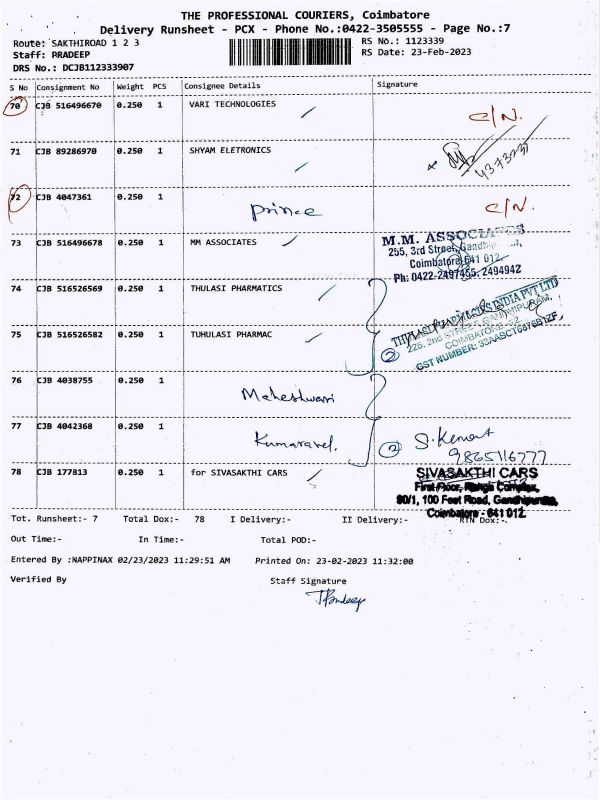 THE PROFESSIONAL COURIERS, Coimbatore
Delivery Runsheet - PCX - Phone No.:0422-3505555 - Page No.:7
Route: SAKTHIROAD 1 2 3
RS No.: 1123339
Staff: PRADEEP
RS Date: 23-Feb-2023
DRS No.: DCJB112333907
S No Consignment No Weight PCS Consignee Details Signature
70 CJB 516496670 0.250 1 VARI TECHNOLOGIES
C/N.
71 CJB 89286970 0.250 1 SHYAM ELETRONICS
72 CJB 4047361 0.250 1 prince C/N.
73 CJB 516496678 0.250 1 MM ASSOCIATES
M.M. ASSOCIATES
255, 3rd Street,
Coimbatore-641 012.
Ph: 0422-2497455, 2494942
74 CJB 516526569 0.250 1 THULASI PHARMATICS
75 CJB 516526582 0.250 1 TUHULASI PHARMAC
2
INDIA PVT LTD
225, 2nd STREET, GANDHIPURAM,
GST NUMBER:
76 CJB 4038755 0.250 1 Maheshwari
77 CJB 4042368 0.250 1 Kumaravel. 2
9865116777
78 CJB 177813 0.250 1 for SIVASAKTHI CARS
SIVASAKTHI CARS
First Floor, Complex,
100 Feet Road,
Coimbatore - 641 012.
Tot. Runsheet:- 7 Total Dox:- 78 I Delivery:- II Delivery:- RTN Dox:-
Out Time:- In Time:- Total POD:-
Entered By :NAPPINAX 02/23/2023 11:29:51 AM Printed On: 23-02-2023 11:32:00
Verified By Staff Signature